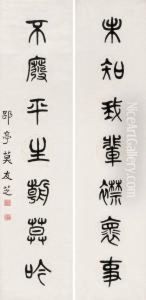 未知我輩襟褱事
不廢平生朝莫吟
郘亭莫友芝
NiceArtGallery.com